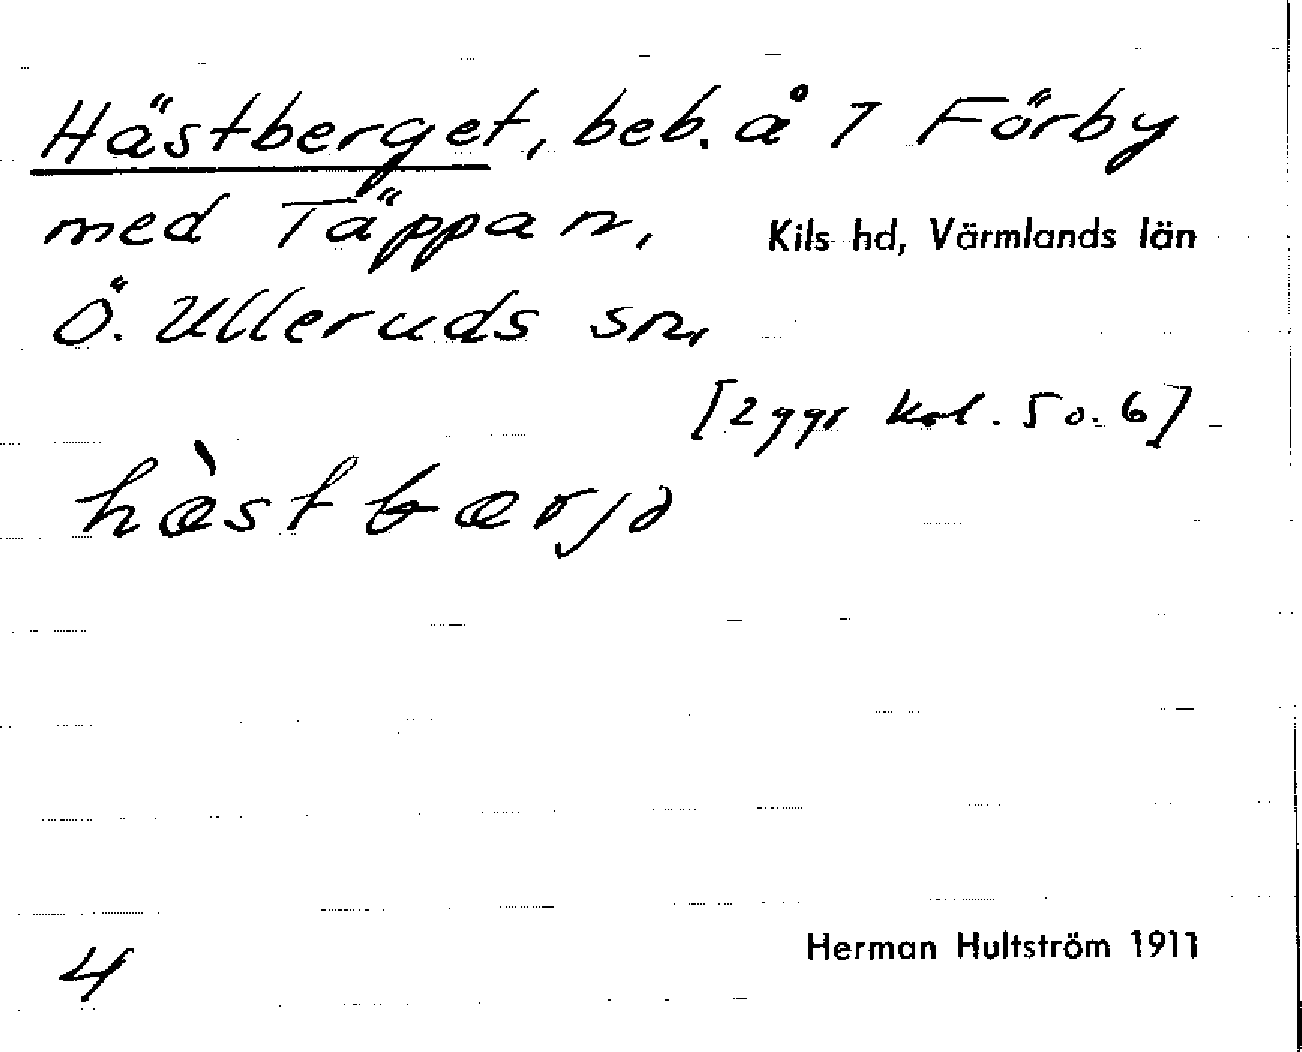 Hästberget, beb. å 7 Förby
med Täppan,
Kils hd, Värmlands län
Ö. Ulleruds sn,
[2 ggr kol. 5 o. 6]
hæ̀stbærjə
4
Herman Hultström 1911